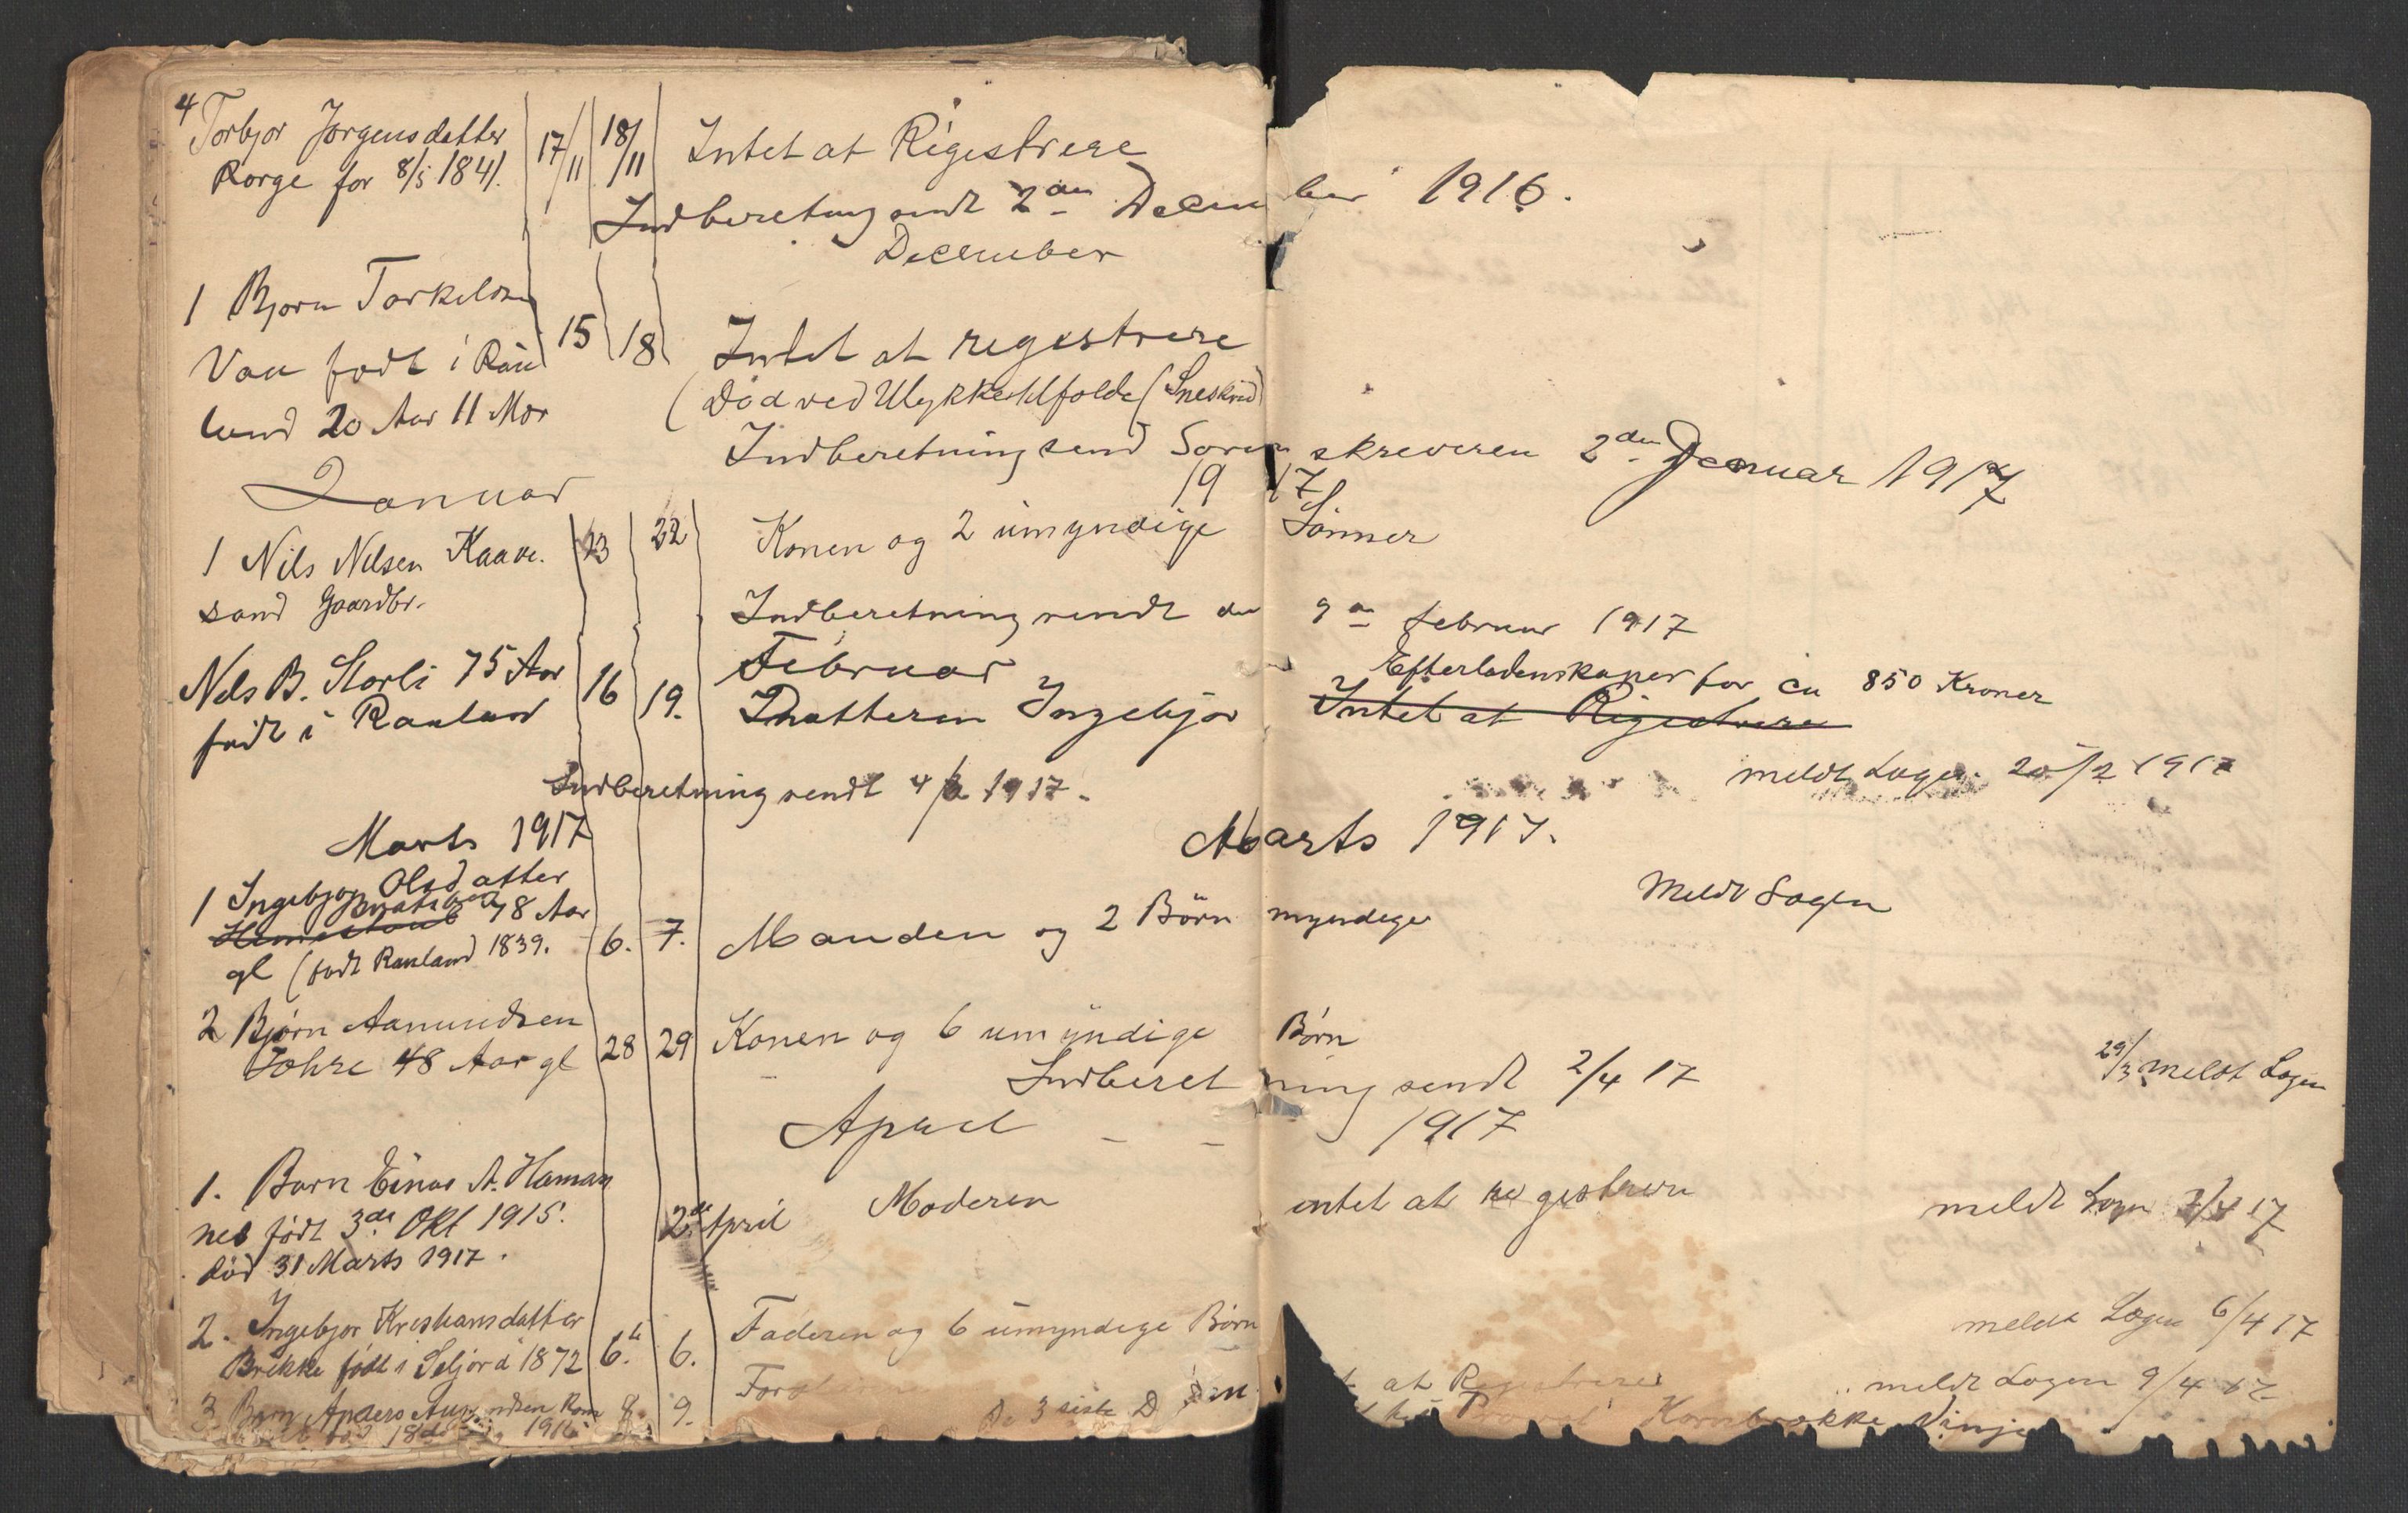 4 Torbjor Jørgensdatter
Rorge før 8/5 1841. 17/11 18/11 Intet at Rigestrere
Indberetning sendt 2den December 1916.
December
1 Bjørn Torkelsen
Vaa født i Rau 15 18 Intet at regestrere
land 20 Aar 11 Mdr (Død ved Ulykkestilfælde (Sneskred)
Indberetning send Sorenskreveren 2den Januar 1917
Januar 1917
1 Nils Nilsen Kaave. 23 22 Konen og 2 umyndige Sønner
sand Gaardbr.
Indberetning sendt den 9de februar 1917
Februar
Efterladenskaper for ca 850 Kroner
Nils B. Storli 75 Aar 16 19. Datteren Ingebjør Intet at Rigestrere
født i Rauland
meldt Lagen 20/2 1917
Indberetning sendt 4/3 1917.
Marts 1917 Marts 1917.
1 Ingebjør Olsdatter
78 Aar 6. 7. Manden og 2 Børn myndige Meldt Lagen
gl (født Rauland 1839.
2 Bjørn Aamundsen
48 Aar gl 28 29 Konen og 6 umyndige Børn
29/3 meldt Lagen
Indberetning sendt 2/4 17
April - - 1917
1. Barn Einar A. Haman
nes født 3de Okt 1915. 2de April Moderen intet at regestrere meldt Lagen 2/4 17
død 31 Marts 1917.
2. Ingebjør Kristiansdatter
Brekke født i Seljord 1872 6te 6. Faderen og 6 umyndige Børn meldt Lagen 6/4 17
3 Barn Anders 8. 9. at Regestrere meldt Lagen 9/4 17
18de 1916 De 3 siste Vinje